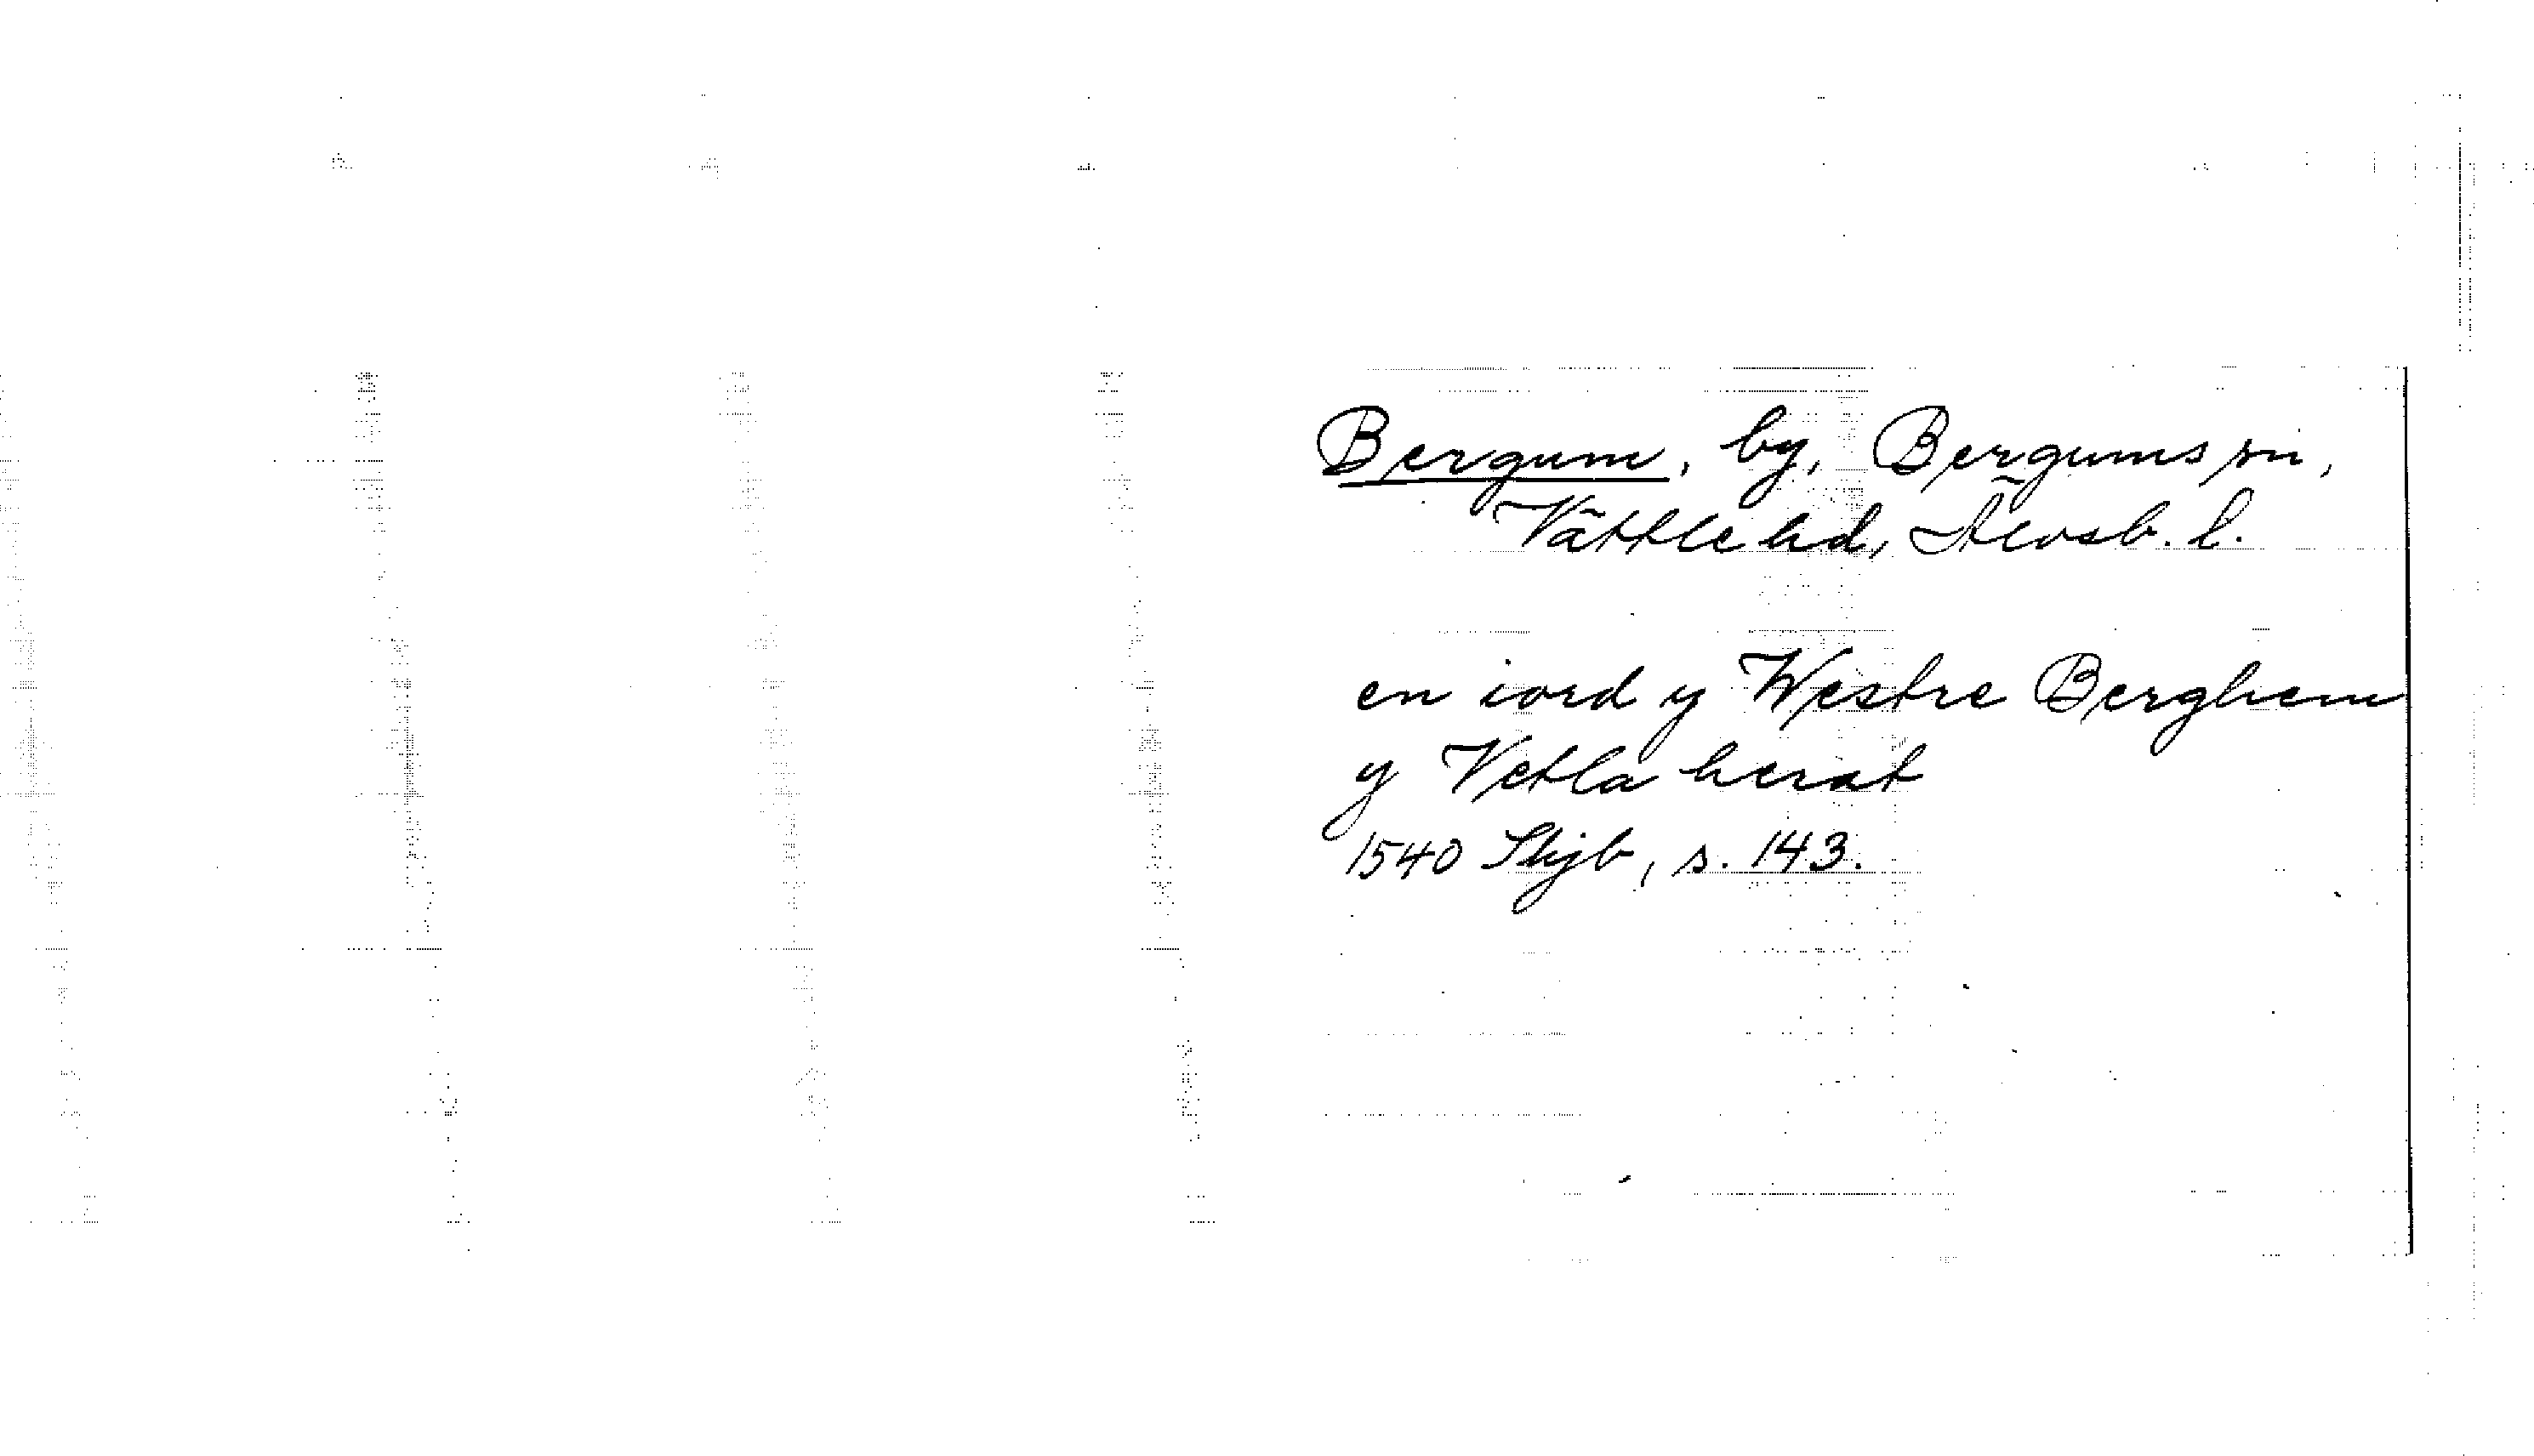 Bergum, by, Bergums sn,
Vättle hd, Älvsb. l.
en iord y Westre Berghem
y Vetla herat
1540 Skjb, s. 143.